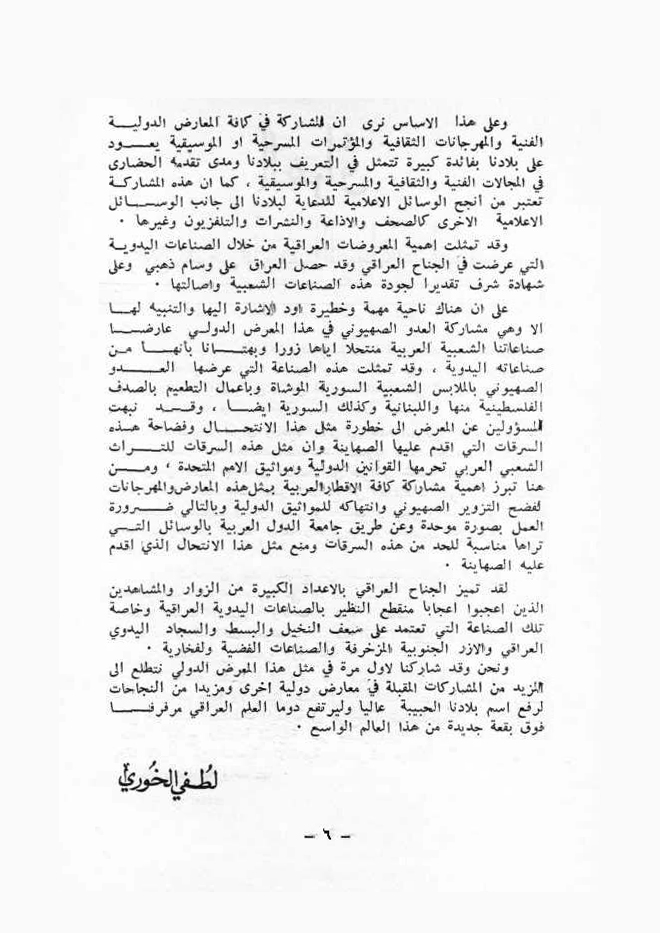 وعلى هذا الاساس نرى ان المشاركة في كافة المعارض الدولية
الفنية والمهرجانات الثقافية والمؤتمرات المسرحية او الموسيقية يعود
على بلادنا بفائدة كبيرة تتمثل في التعريف ببلادنا ومدى تقدمه الحضارى
في المجالات الفنية والثقافية والمسرحية والموسيقية ، كما ان هذه المشاركة
تعتبر من أنجح الوسائل الاعلامية للدعاية لبلادنا الى جانب الوسائل
الاعلامية الاخرى كالصحف والاذاعة والنشرات والتلفزيون وغيرها .
وقد تمثلت اهمية المعروضات العراقية من خلال الصناعات اليدوية
التي عرضت في الجناح العراقي وقد حصل العراق على وسام ذهبي وعلى
شهادة شرف تقديرا لجودة هذه الصناعات الشعبية واصالتها .
على ان هناك ناحية مهمة وخطيرة اود الاشارة اليها والتنبيه لها
الا وهي مشاركة العدو الصهيوني في هذا المعرض الدولي عارضا
صناعاتنا الشعبية العربية منتحلا اياها زورا وبهتانا بأنها من
صناعاته اليدوية ، وقد تمثلت هذه الصناعة التي عرضها العدو
الصهيوني بالملابس الشعبية السورية الموشاة وباعمال التطعيم بالصدف
الفلسطينية منها واللبنانية وكذلك السورية ايضا ، وقد نبهت
المسؤولين عن المعرض الى خطورة مثل هذا الانتحال وفضاحة هذه
السرقات التي اقدم عليها الصهاينة وان مثل هذه السرقات للتراث
الشعبي العربي تحرمها القوانين الدولية ومواثيق الامم المتحدة ، ومن
هنا تبرز اهمية مشاركة كافة الاقطارالعربية بمثل‌هذه المعارض‌والمهرجانات
لفضح التزوير الصهيوني وانتهاكه للمواثيق الدولية وبالتالي ضرورة
العمل بصورة موحدة وعن طريق جامعة الدول العربية بالوسائل التي
تراها مناسبة للحد من هذه السرقات ومنع مثل هذا الانتحال الذي اقدم
عليه الصهاينة .
لقد تميز الجناح العراقي بالاعداد الكبيرة من الزوار والمشاهدين
الذين اعجبوا اعجابا منقطع النظير بالصناعات اليدوية العراقية وخاصة
تلك الصناعة التي تعتمد على سعف النخيل والبسط والسجاد اليدوي
العراقي والازر الجنوبية المزخرفة والصناعات الفضية ولفخارية .
ونحن وقد شاركنا لاول مرة في مثل هذا المعرض الدولي نتطلع الى
المزيد من المشاركات المقبلة في معارض دولية اخرى ومزيدا من النجاحات
لرفع اسم بلادنا الحبيبة عاليا وليرتفع دوما العلم العراقي مرفرفا
فوق بقعة جديدة من هذا العالم الواسع .
لطفي الخوري
– ٦ –